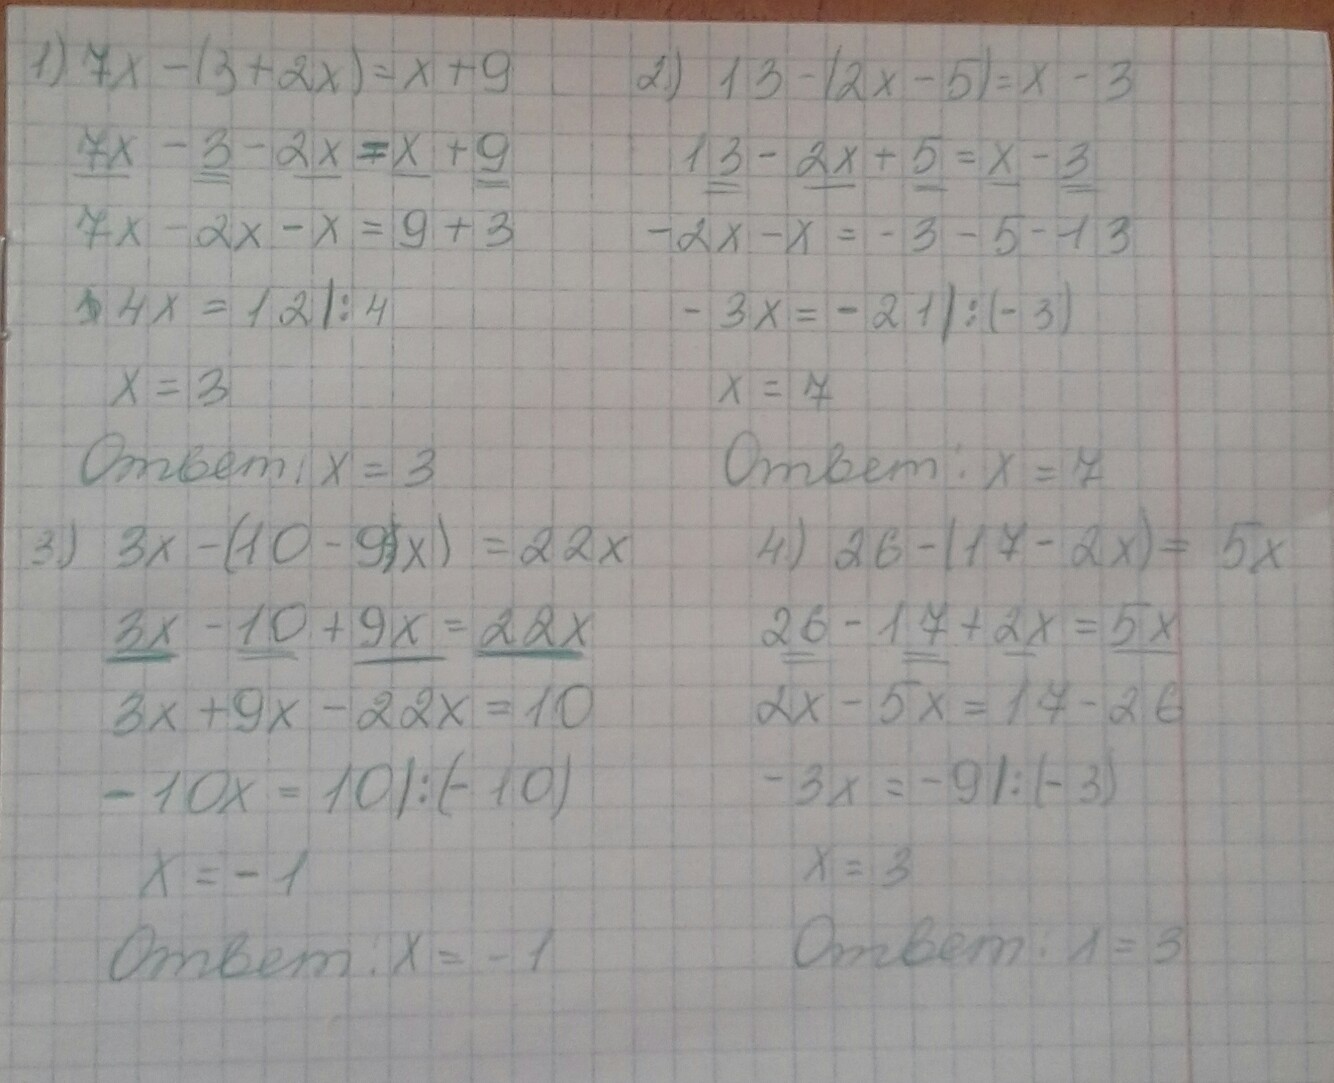 1) 7x - (3 + 2x) = x + 9
7x - 3 - 2x = x + 9
7x - 2x - x = 9 + 3
4x = 12 |: 4
x = 3
Ответ: x = 3
2) 13 - (2x - 5) = x - 3
13 - 2x + 5 = x - 3
-2x - x = -3 - 5 - 13
-3x = -21 |: (-3)
x = 7
Ответ: x = 7
3) 3x - (10 - 9x) = 22x
3x - 10 + 9x = 22x
3x + 9x - 22x = 10
-10x = 10 |: (-10)
x = -1
Ответ: x = -1
4) 26 - (17 - 2x) = 5x
26 - 17 + 2x = 5x
2x - 5x = 17 - 26
-3x = -9 |: (-3)
x = 3
Ответ: x = 3